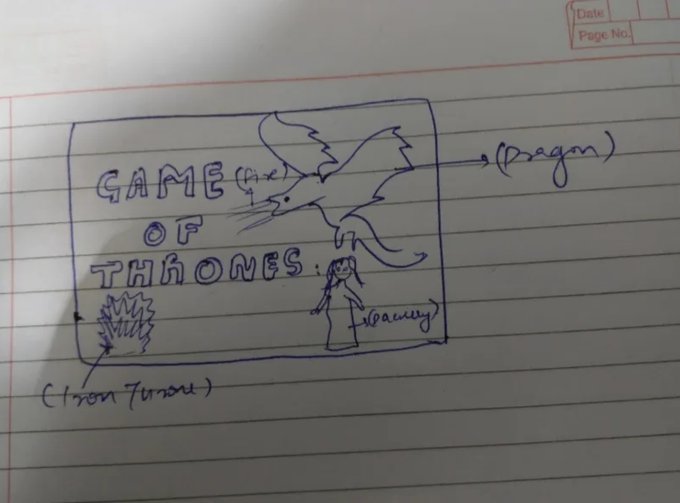 Date
Page No.
GAME
(fire)
(Dragon)
OF
THRONES
(Iron Throne)